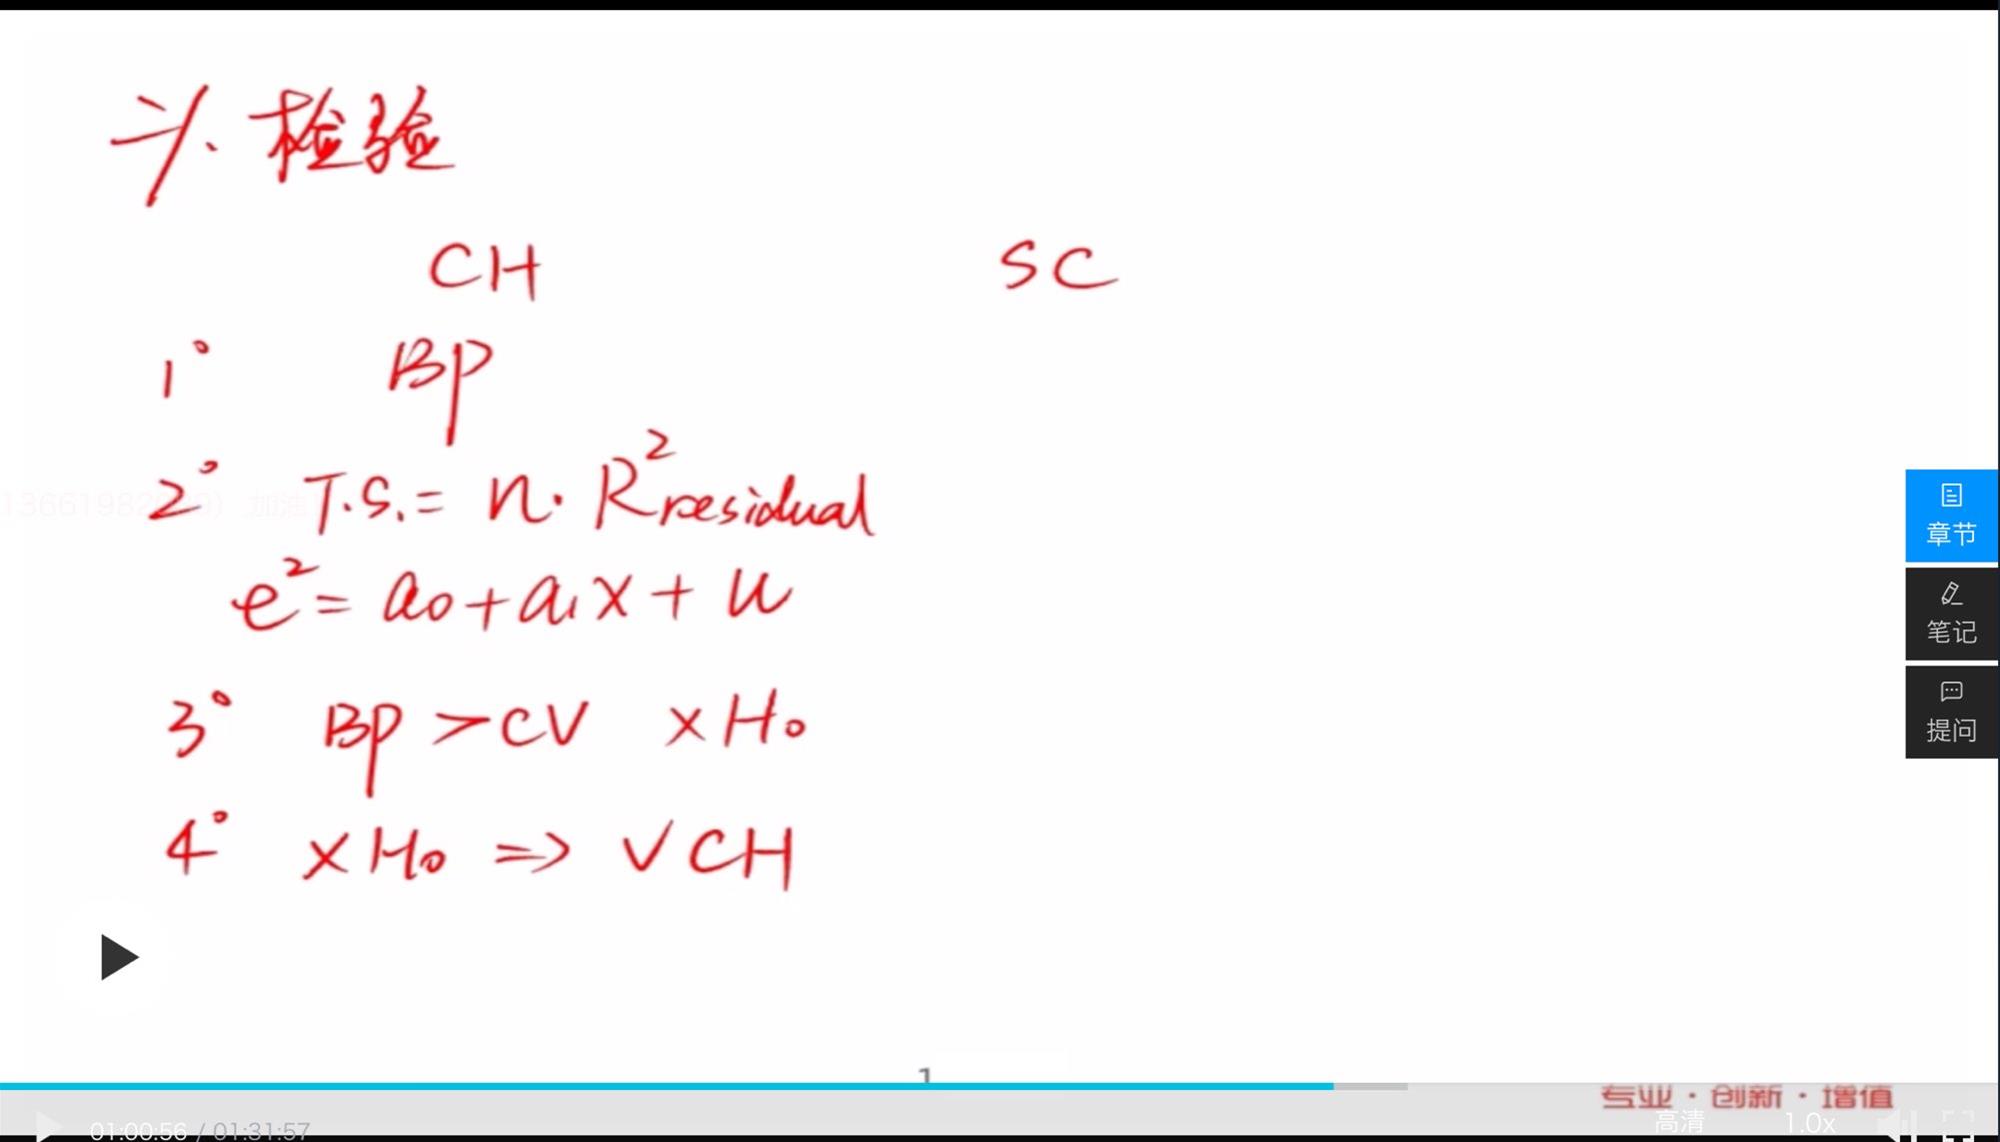 斗. 检验
CH SC
1° BP
2° T.S. = n. R²residual
e² = a₀ + a₁x + u
3° BP > CV × H₀
4° × H₀ ⇒ √ CH
加油
章节
笔记
提问
1
专业 · 创新 · 增值
01:00:56 / 01:31:57
高清 1.0x